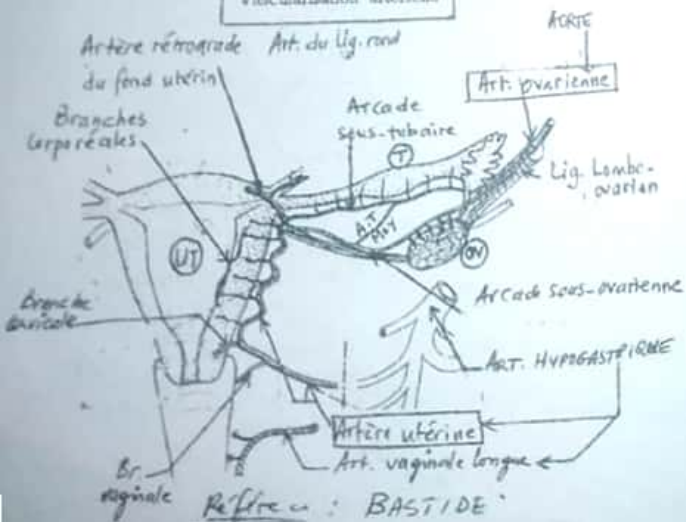 AORTE
Artère rétrograde
du fond utérin
Art. du Lig. rond
Art. ovarienne
Branches
corporéales
Arcade
sous-tubaire
T
Lig. Lombo-
ovarien
A.T
Moy
UT
OV
Arcade sous-ovarienne
Branche
cervicale
ART. HYPOGASTRIQUE
Artère utérine
Art. vaginale longue
Br.
vaginale
: BASTIDE